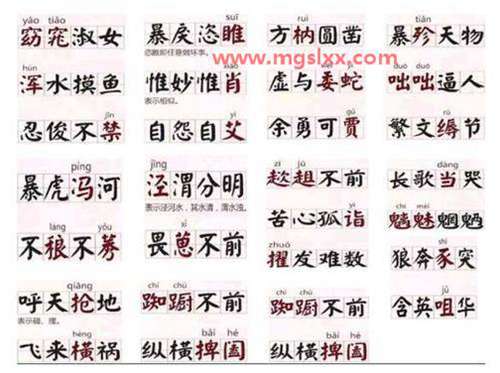 yǎo tiǎo
窈窕淑女
suī
暴戾恣睢
恣睢即任意做坏事。
ruì
方枘圆凿
tiǎn
暴殄天物
www.mgslxx.com
hún
浑水摸鱼
xiào
惟妙惟肖
表示相似。
yí
虚与委蛇
duō duō
咄咄逼人
jīn
忍俊不禁
yì
自怨自艾
gǔ
余勇可贾
rù
繁文缛节
píng
暴虎冯河
jīng
泾渭分明
表示泾河水，其水清，渭水浊。
zī jū
趑趄不前
dàng
长歌当哭
láng yǒu
不稂不莠
xǐ
畏葸不前
yì
苦心孤诣
chī mèi
魑魅魍魉
zhuó
擢发难数
tū
狼奔豕突
qiāng
呼天抢地
表示碰、撞。
chí chú
踟蹰不前
chí chú
踟蹰不前
jǔ
含英咀华
hèng
飞来横祸
bǎi hé
纵横捭阖
bǎi hé
纵横捭阖